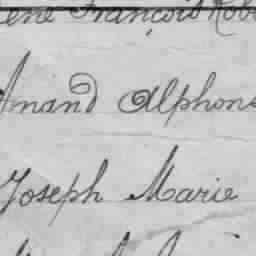 ene François Robe
Amand Alphons
Joseph Marie